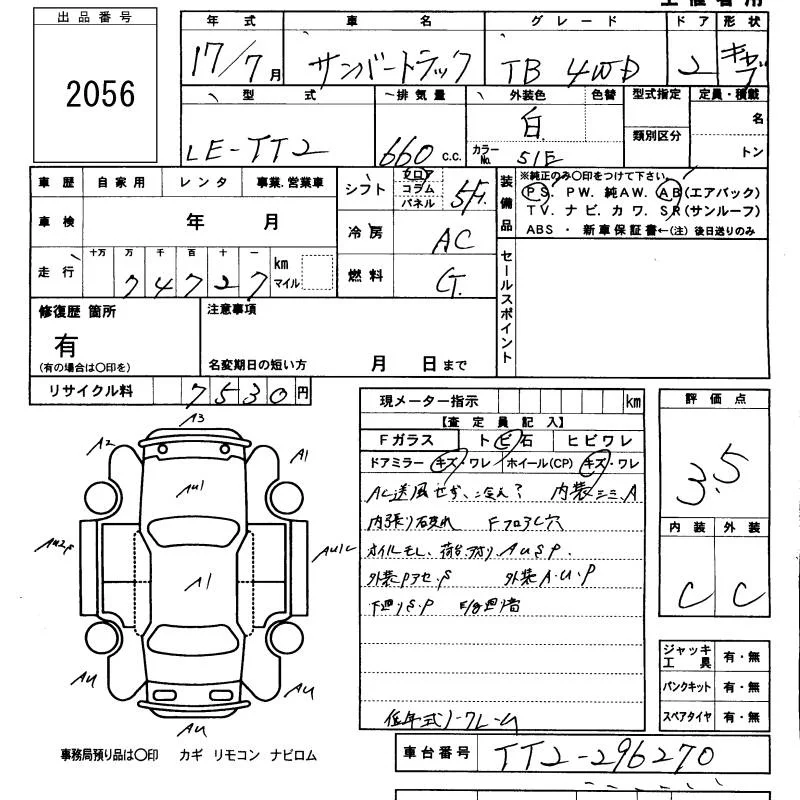 出品番号
2056
年式 車名 グレード ドア 形状
17/7月 サンバートラック TB 4WD 2 キャブ
型式 排気量 外装色 色替 型式指定 定員・積載
LE-TT2 660 c.c. 白 カラーNo. 51E 類別区分 名
トン
車歴 自家用 レンタ 事業.営業車
車検 年 月
走行 十万 万 千 百 十 一 km マイル
7 4 7 2 7
シフト フロア コラム パネル 5F.
冷房 AC
燃料 G.
装備品 ※純正のみ〇印をつけて下さい。
PS. PW. 純AW. AB(エアバック)
TV. ナビ. カワ. SR(サンルーフ)
ABS ・ 新車保証書←(注) 後日送りのみ
セールスポイント
修復歴 箇所
有
(有の場合は〇印を)
注意事項
名変期日の短い方 月 日まで
リサイクル料 7530 円
現メーター指示 km
【査定員記入】
Fガラス トビ石 ヒビワレ
ドアミラー キズ・ワレ ホイール(CP) キズ・ワレ
AC送風せず、 内装 A
内張り FフロアC穴
AUSP.
外装Pアセ.S 外装A.U.P
下廻りS.P
評価点
3.5
内装 外装
C C
ジャッキ 工具 有・無
パンクキット 有・無
スペアタイヤ 有・無
車台番号 TT2-296270
A3
A2 A1
AU1
A1
AU1C
AU AU
AU
事務局預り品は〇印 カギ リモコン ナビロム